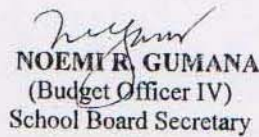 NOEMI R. GUMANA
(Budget Officer IV)
School Board Secretary